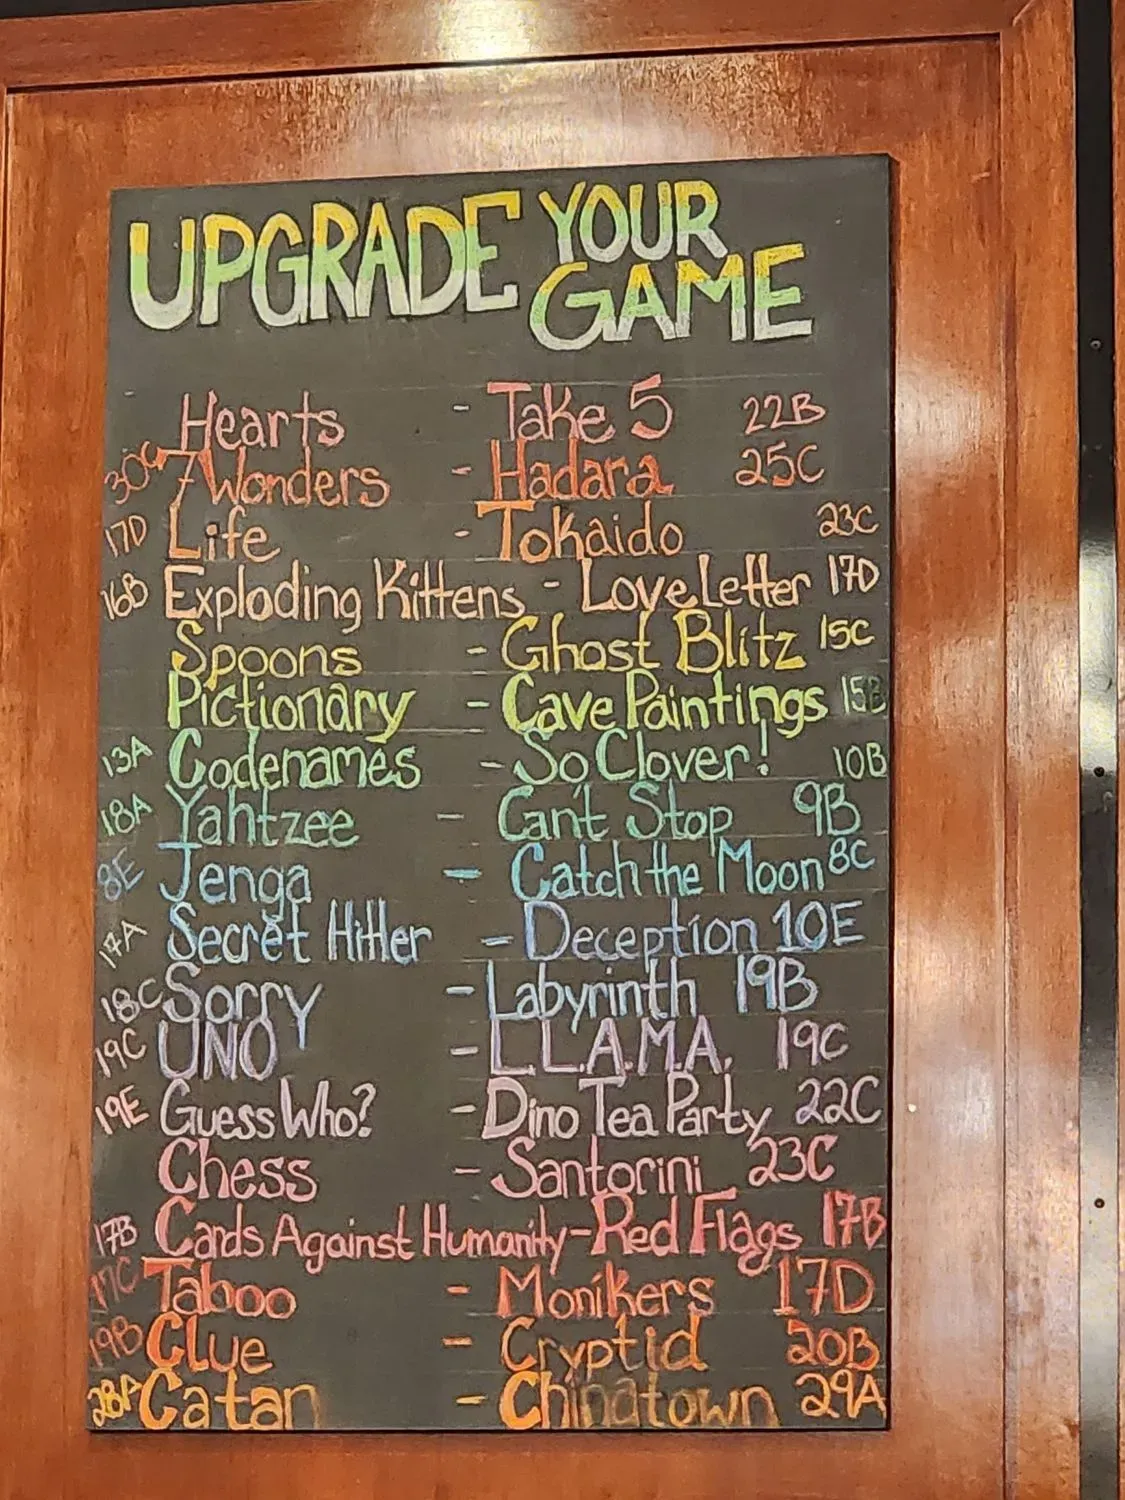 UPGRADE YOUR GAME
Hearts - Take 5 22B
7 Wonders - Hadara 25C
17D Life - Tokaido 23C
16B Exploding Kittens - Love Letter 17D
Spoons - Ghost Blitz 15C
Pictionary - Cave Paintings 15B
13A Codenames - So Clover! 10B
18A Yahtzee - Can't Stop 9B
8E Jenga - Catch the Moon 8C
17A Secret Hitler - Deception 10E
18C Sorry - Labyrinth 19B
19C UNO - L.L.A.M.A. 19C
19E Guess Who? - Dino Tea Party 22C
Chess - Santorini 23C
17B Cards Against Humanity - Red Flags 17B
17C Taboo - Monikers 17D
19B Clue - Cryptid 20B
28A Catan - Chinatown 29A